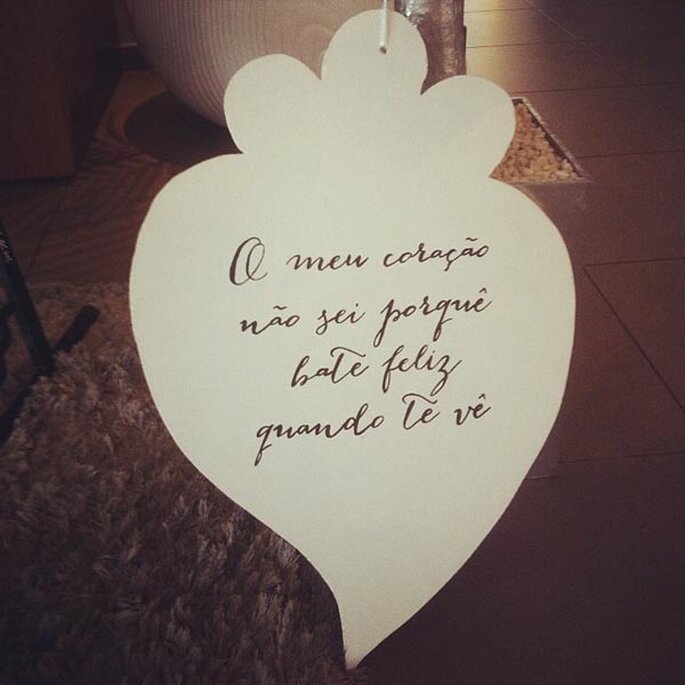 O meu coração
não sei porquê
bate feliz
quando te vê